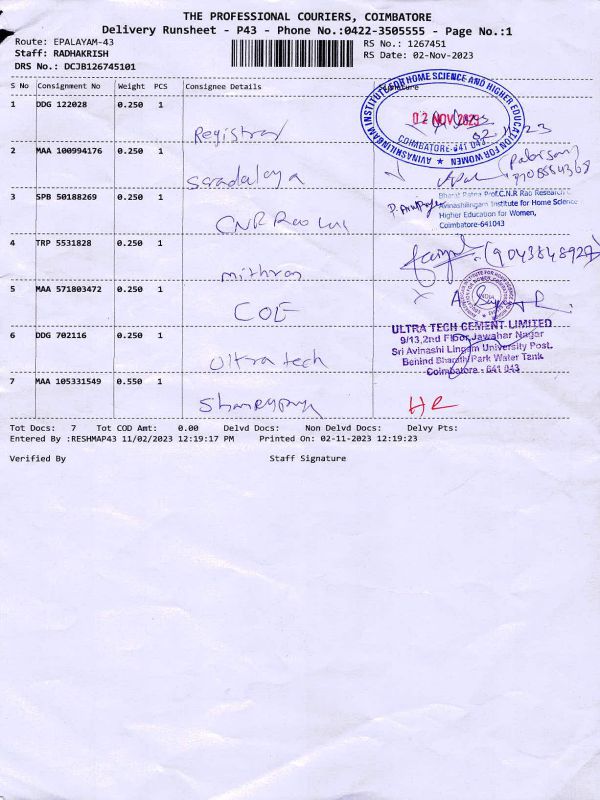 THE PROFESSIONAL COURIERS, COIMBATORE
Delivery Runsheet - P43 - Phone No.:0422-3505555 - Page No.:1
Route: EPALAYAM-43 RS No.: 1267451
Staff: RADHAKRISH RS Date: 02-Nov-2023
DRS No.: DCJB126745101
S No Consignment No Weight PCS Consignee Details
AVINASHILINGAM INSTITUTE FOR HOME SCIENCE AND HIGHER EDUCATION FOR WOMEN
02 NOV 2023
COIMBATORE-641 043
1 DDG 122028 0.250 1 Registrar
2 MAA 100994176 0.250 1 Saradalaya
3 SPB 50188269 0.250 1 CNR Rao
Bharat Ratna Prof.C.N.R Rao Research
Avinashilingam Institute for Home Science
Higher Education for Women,
Coimbatore-641043
4 TRP 5531828 0.250 1 mithran
5 MAA 571803472 0.250 1 COE
6 DDG 702116 0.250 1 Ultra tech
ULTRA TECH CEMENT LIMITED
9/13,2nd Floor,Jawahar Nagar
Sri Avinashi Lingam University Post.
Behind Bharathi Park Water Tank
Coimbatore - 641 043
7 MAA 105331549 0.550 1 HR
Tot Docs: 7 Tot COD Amt: 0.00 Delvd Docs: Non Delvd Docs: Delvy Pts:
Entered By :RESHMAP43 11/02/2023 12:19:17 PM Printed On: 02-11-2023 12:19:23
Verified By Staff Signature